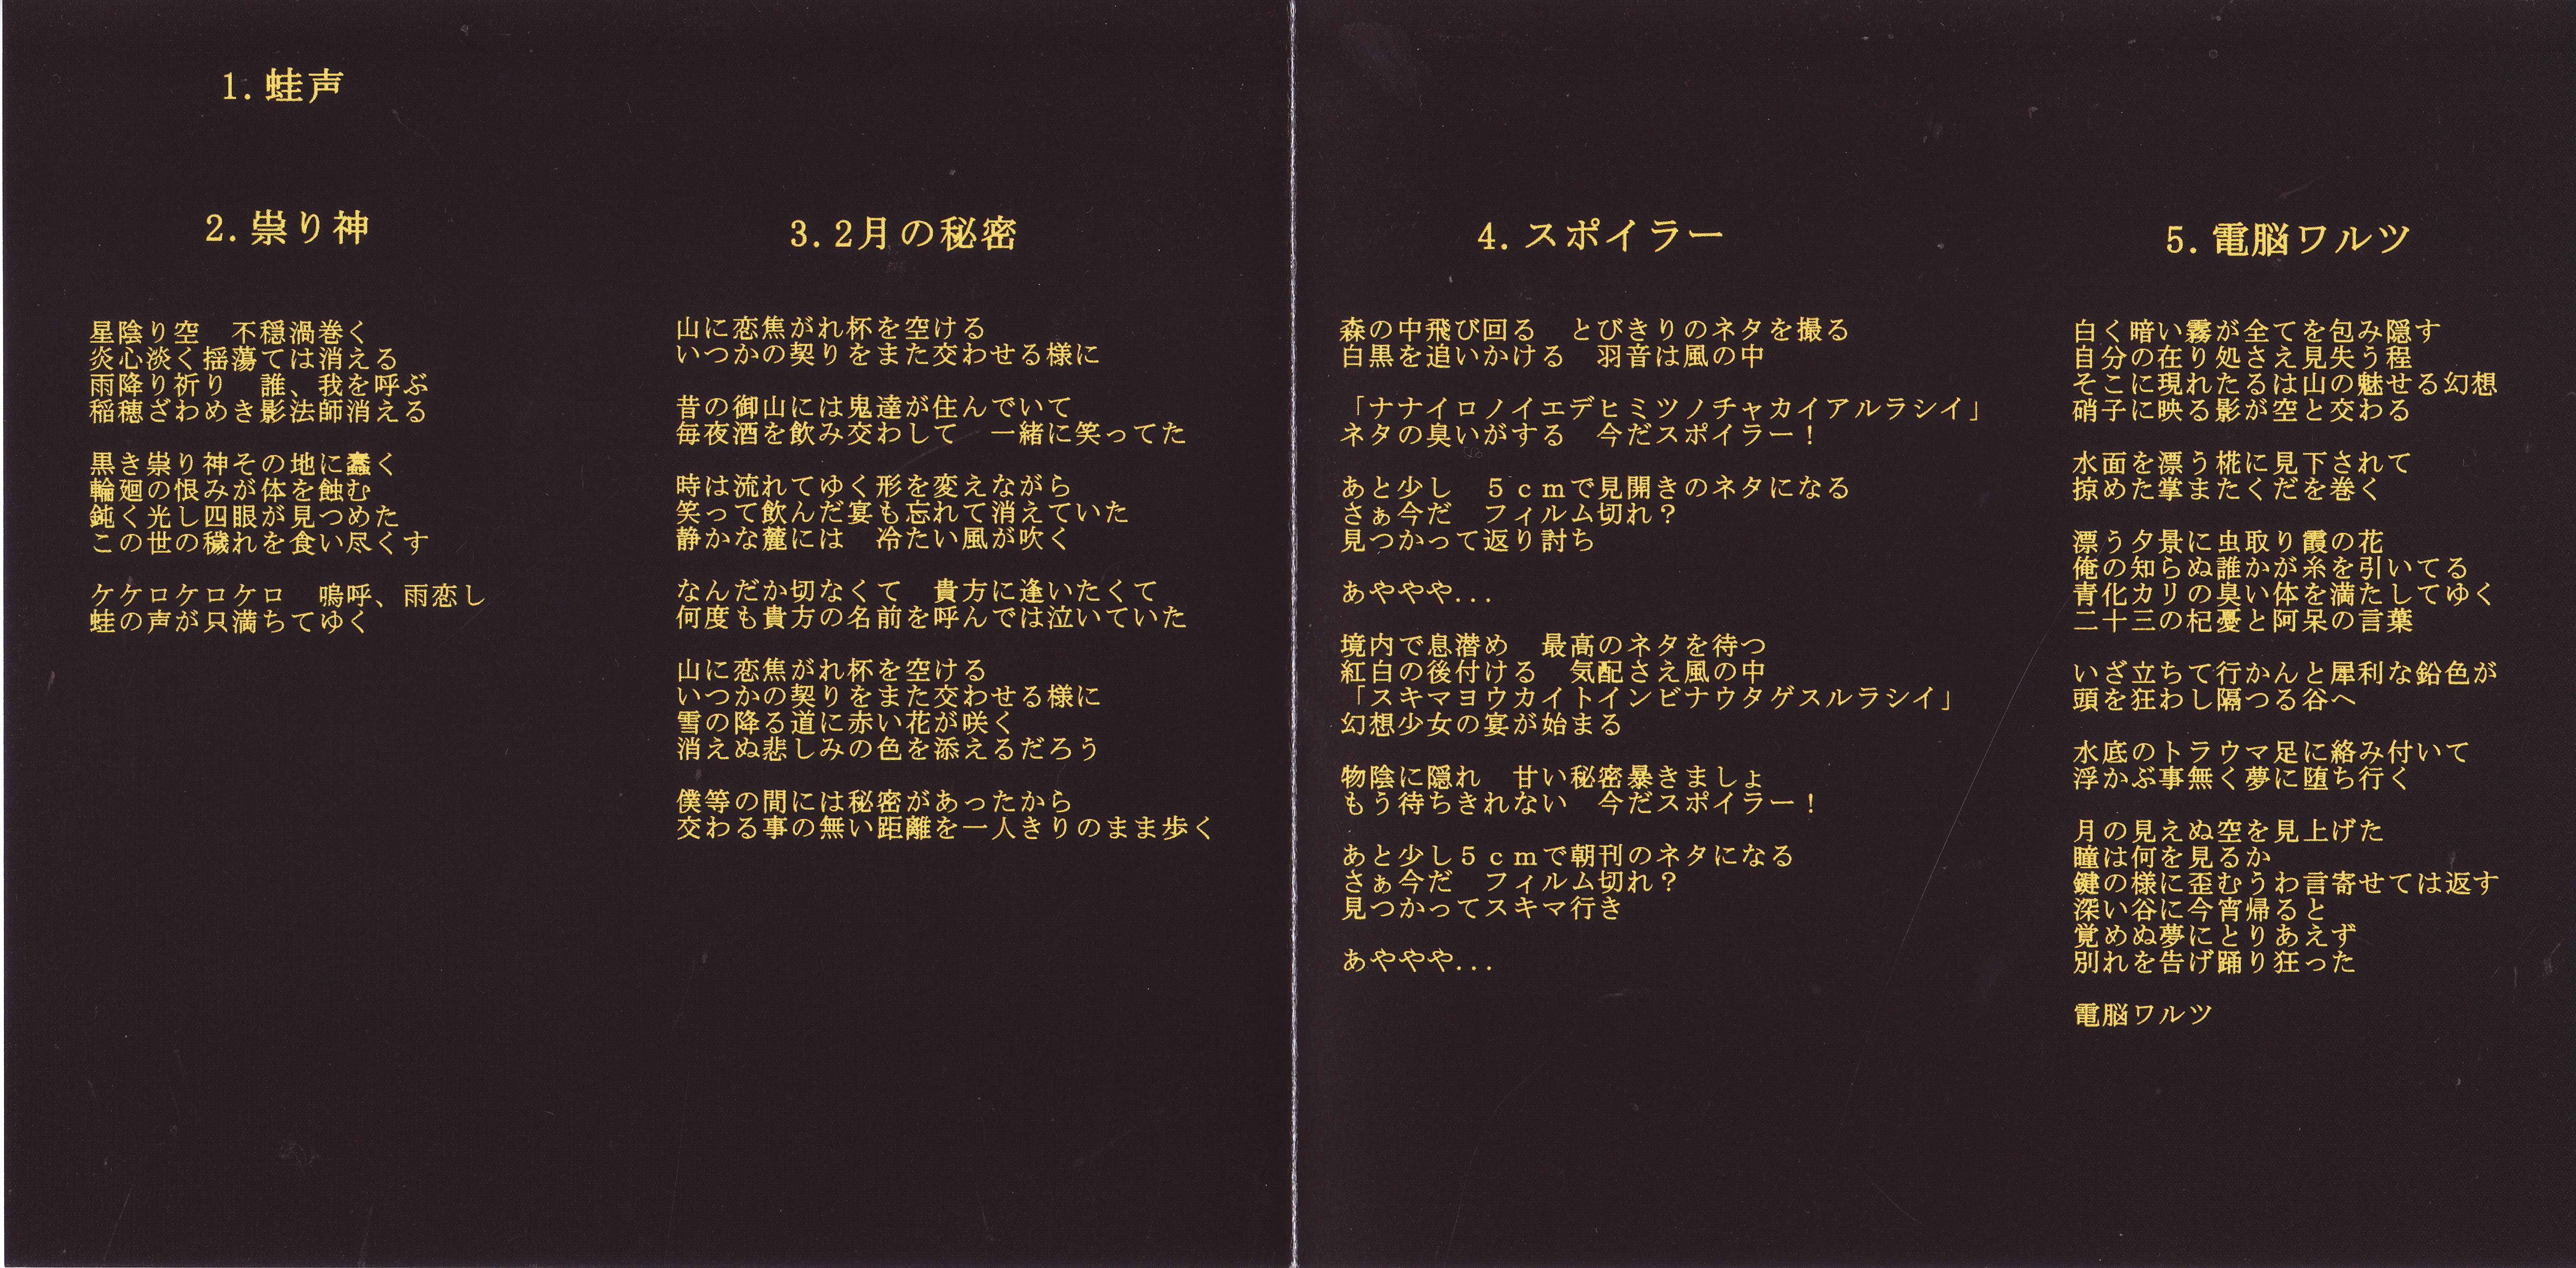 1. 蛙声
2. 祟り神
星陰り空　不穏渦巻く
炎心淡く揺蕩ては消える
雨降り祈り　誰、我を呼ぶ
稲穂ざわめき影法師消える
黒き祟り神その地に蠢く
輪廻の恨みが体を蝕む
鈍く光し四眼が見つめた
この世の穢れを食い尽くす
ケケロケロケロ　嗚呼、雨恋し
蛙の声が只満ちてゆく
3. 2月の秘密
山に恋焦がれ杯を空ける
いつかの契りをまた交わせる様に
昔の御山には鬼達が住んでいて
毎夜酒を飲み交わして　一緒に笑ってた
時は流れてゆく形を変えながら
笑って飲んだ宴も忘れて消えていた
静かな麓には　冷たい風が吹く
なんだか切なくて　貴方に逢いたくて
何度も貴方の名前を呼んでは泣いていた
山に恋焦がれ杯を空ける
いつかの契りをまた交わせる様に
雪の降る道に赤い花が咲く
消えぬ悲しみの色を添えるだろう
僕等の間には秘密があったから
交わる事の無い距離を一人きりのまま歩く
4. スポイラー
森の中飛び回る　とびきりのネタを撮る
白黒を追いかける　羽音は風の中
「ナナイロノイエデヒミツノチャカイアルラシイ」
ネタの臭いがする　今だスポイラー！
あと少し　５ｃｍで見開きのネタになる
さぁ今だ　フィルム切れ？
見つかって返り討ち
あややや...
境内で息潜め　最高のネタを待つ
紅白の後付ける　気配さえ風の中
「スキマヨウカイトインビナウタゲスルラシイ」
幻想少女の宴が始まる
物陰に隠れ　甘い秘密暴きましょ
もう待ちきれない　今だスポイラー！
あと少し５ｃｍで朝刊のネタになる
さぁ今だ　フィルム切れ？
見つかってスキマ行き
あややや...
5. 電脳ワルツ
白く暗い霧が全てを包み隠す
自分の在り処さえ見失う程
そこに現れたるは山の魅せる幻想
硝子に映る影が空と交わる
水面を漂う椛に見下されて
掠めた掌またくだを巻く
漂う夕景に虫取り霞の花
俺の知らぬ誰かが糸を引いてる
青化カリの臭い体を満たしてゆく
二十三の杞憂と阿呆の言葉
いざ立ちて行かんと犀利な鉛色が
頭を狂わし隔つる谷へ
水底のトラウマ足に絡み付いて
浮かぶ事無く夢に堕ち行く
月の見えぬ空を見上げた
瞳は何を見るか
鍵の様に歪むうわ言寄せては返す
深い谷に今宵帰ると
覚めぬ夢にとりあえず
別れを告げ踊り狂った
電脳ワルツ